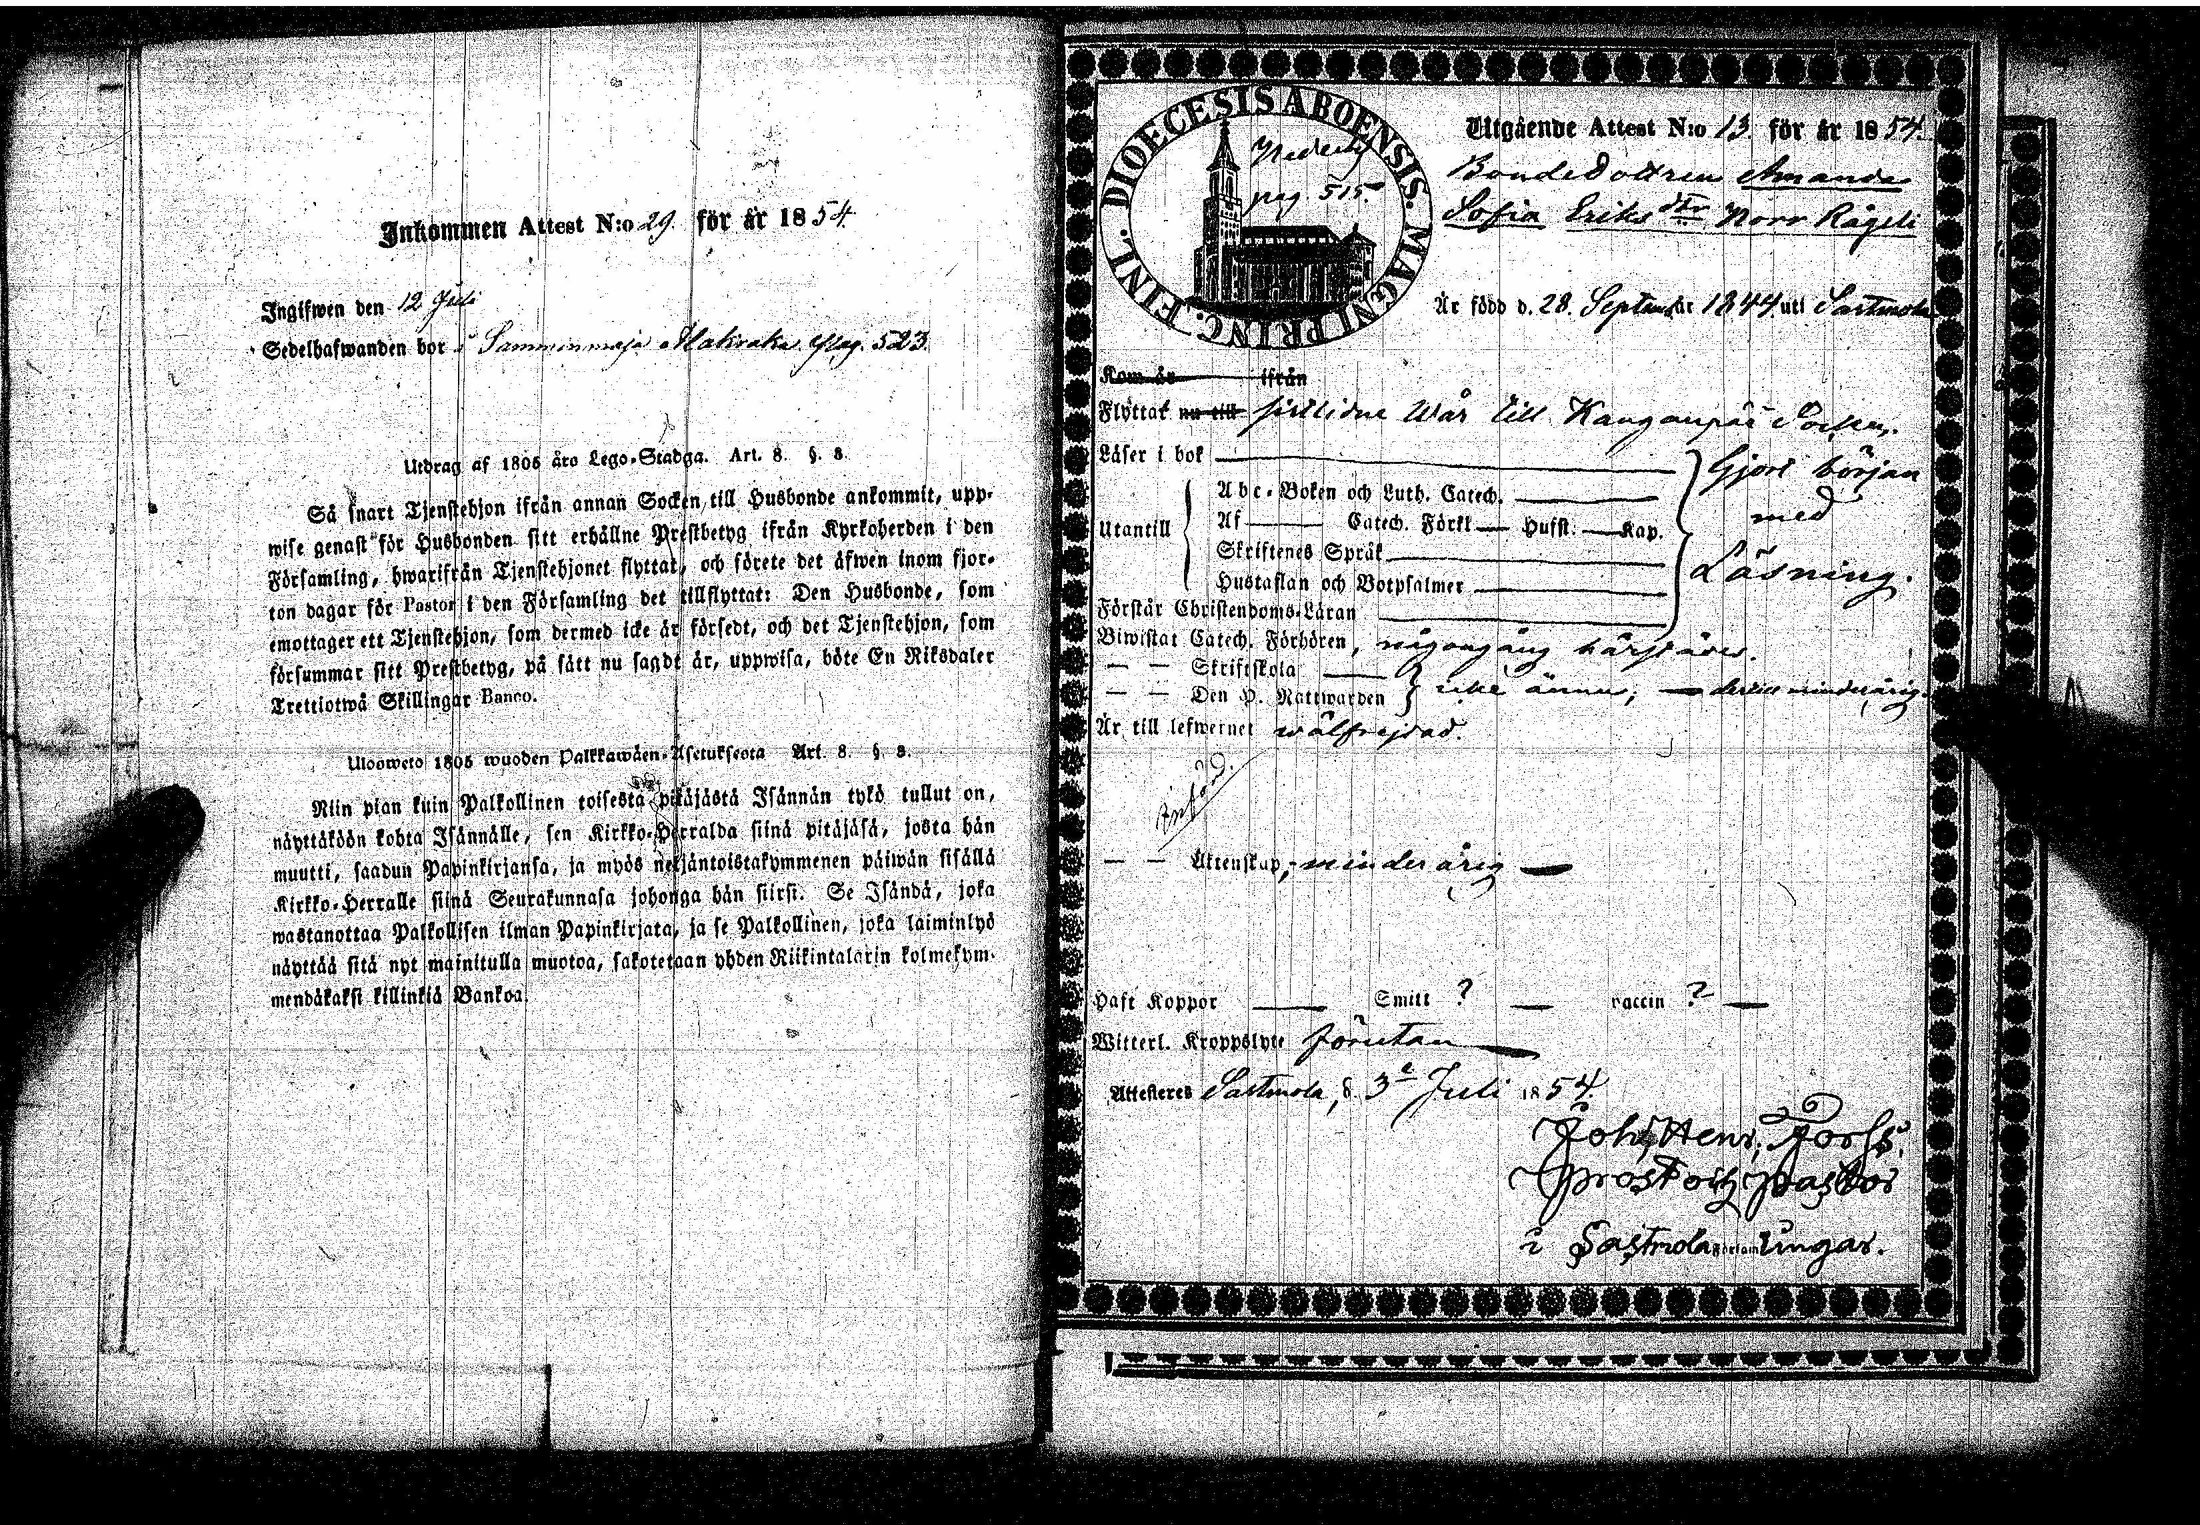 Inkommen Attest N:o 29. för år 1854.
Ingifwen den 12 Juli
Sedelhafwanden bor i Sammunmaja pag. 523.
Utdrag af 1805 års Lego-Stadga. Art. 8. §. 8.
Så snart Tjenstehjon ifrån annan Socken till Husbonde ankommit, upp-
wise genast för Husbonden sitt erhållne Prestbetyg ifrån Kyrkoherden i den
Församling, hwarifrån Tjenstehjonet flyttat, och förete det äfwen inom fjor-
ton dagar för Pastor i den Församling det tillflyttat: Den Husbonde, som
emottager ett Tjenstehjon, som dermed icke är försedt, och det Tjenstehjon, som
försummar sitt Prestbetyg, på sätt nu sagdt är, uppwisa, böte En Riksdaler
Trettiotwå Skillingar Banco.
Ulosweto 1805 wuoden Palkkawäen-Asetuksesta Art. 8. §. 8.
Niin pian kuin Palkollinen toisesta pitäjästä Isännän tykö tullut on,
näyttäköön kohta Isännälle, sen Kirkko-Herralda siinä pitäjäsä, josta hän
muutti, saadun Papinkirjansa, ja myös neljäntoistakymmenen päiwän sisällä
Kirkko-Herralle siinä Seurakunnasa johonga hän siirsi. Se Isändä, joka
wastanottaa Palkollisen ilman Papinkirjata, ja se Palkollinen, joka laiminlyö
näyttää sitä nyt mainitulla muotoa, sakotetaan yhden Riikintalarin kolmekym-
mendäkaksi killinkiä Bankoa.
DIOECESIS ABOENSIS. MAGNI PRINC. FINL.
pag. 515.
Utgående Attest N:o 13. för år 1854.
Bondedottren Amanda
Sofia Eriksdtr Norr Rågeli
Är född d. 28. Septemb. år 1844 uti Sastmola
Kom år ifrån
Flyttat nu till sistlidne Wår till Kanganpää Socken.
Läser i bok
Gjort början
med
Läsning.
Utantill
Abc-Boken och Luth. Catech.
Af Catech. Förkl Husst. Kap.
Skriftenes Språk
Hustaflan och Botpsalmer
Förstår Christendoms-Läran
Biwistat Catech. Förhören, någongång härstädes.
— — Skriftskola
— — Den H. Nattwarden } icke ännu; — dertill minderårig.
Är till lefwernet wälfrejdad.
Införd.
— — Äktenskap, minderårig —
Haft Koppor — Smitt ? — vaccin ? —
Witterl. Kroppslyte förutan
Attesteres Sastmola, d. 3e Juli 1854.
Joh. Henr. Forss.
Prost och pastor
i Sastmola Församlingar.